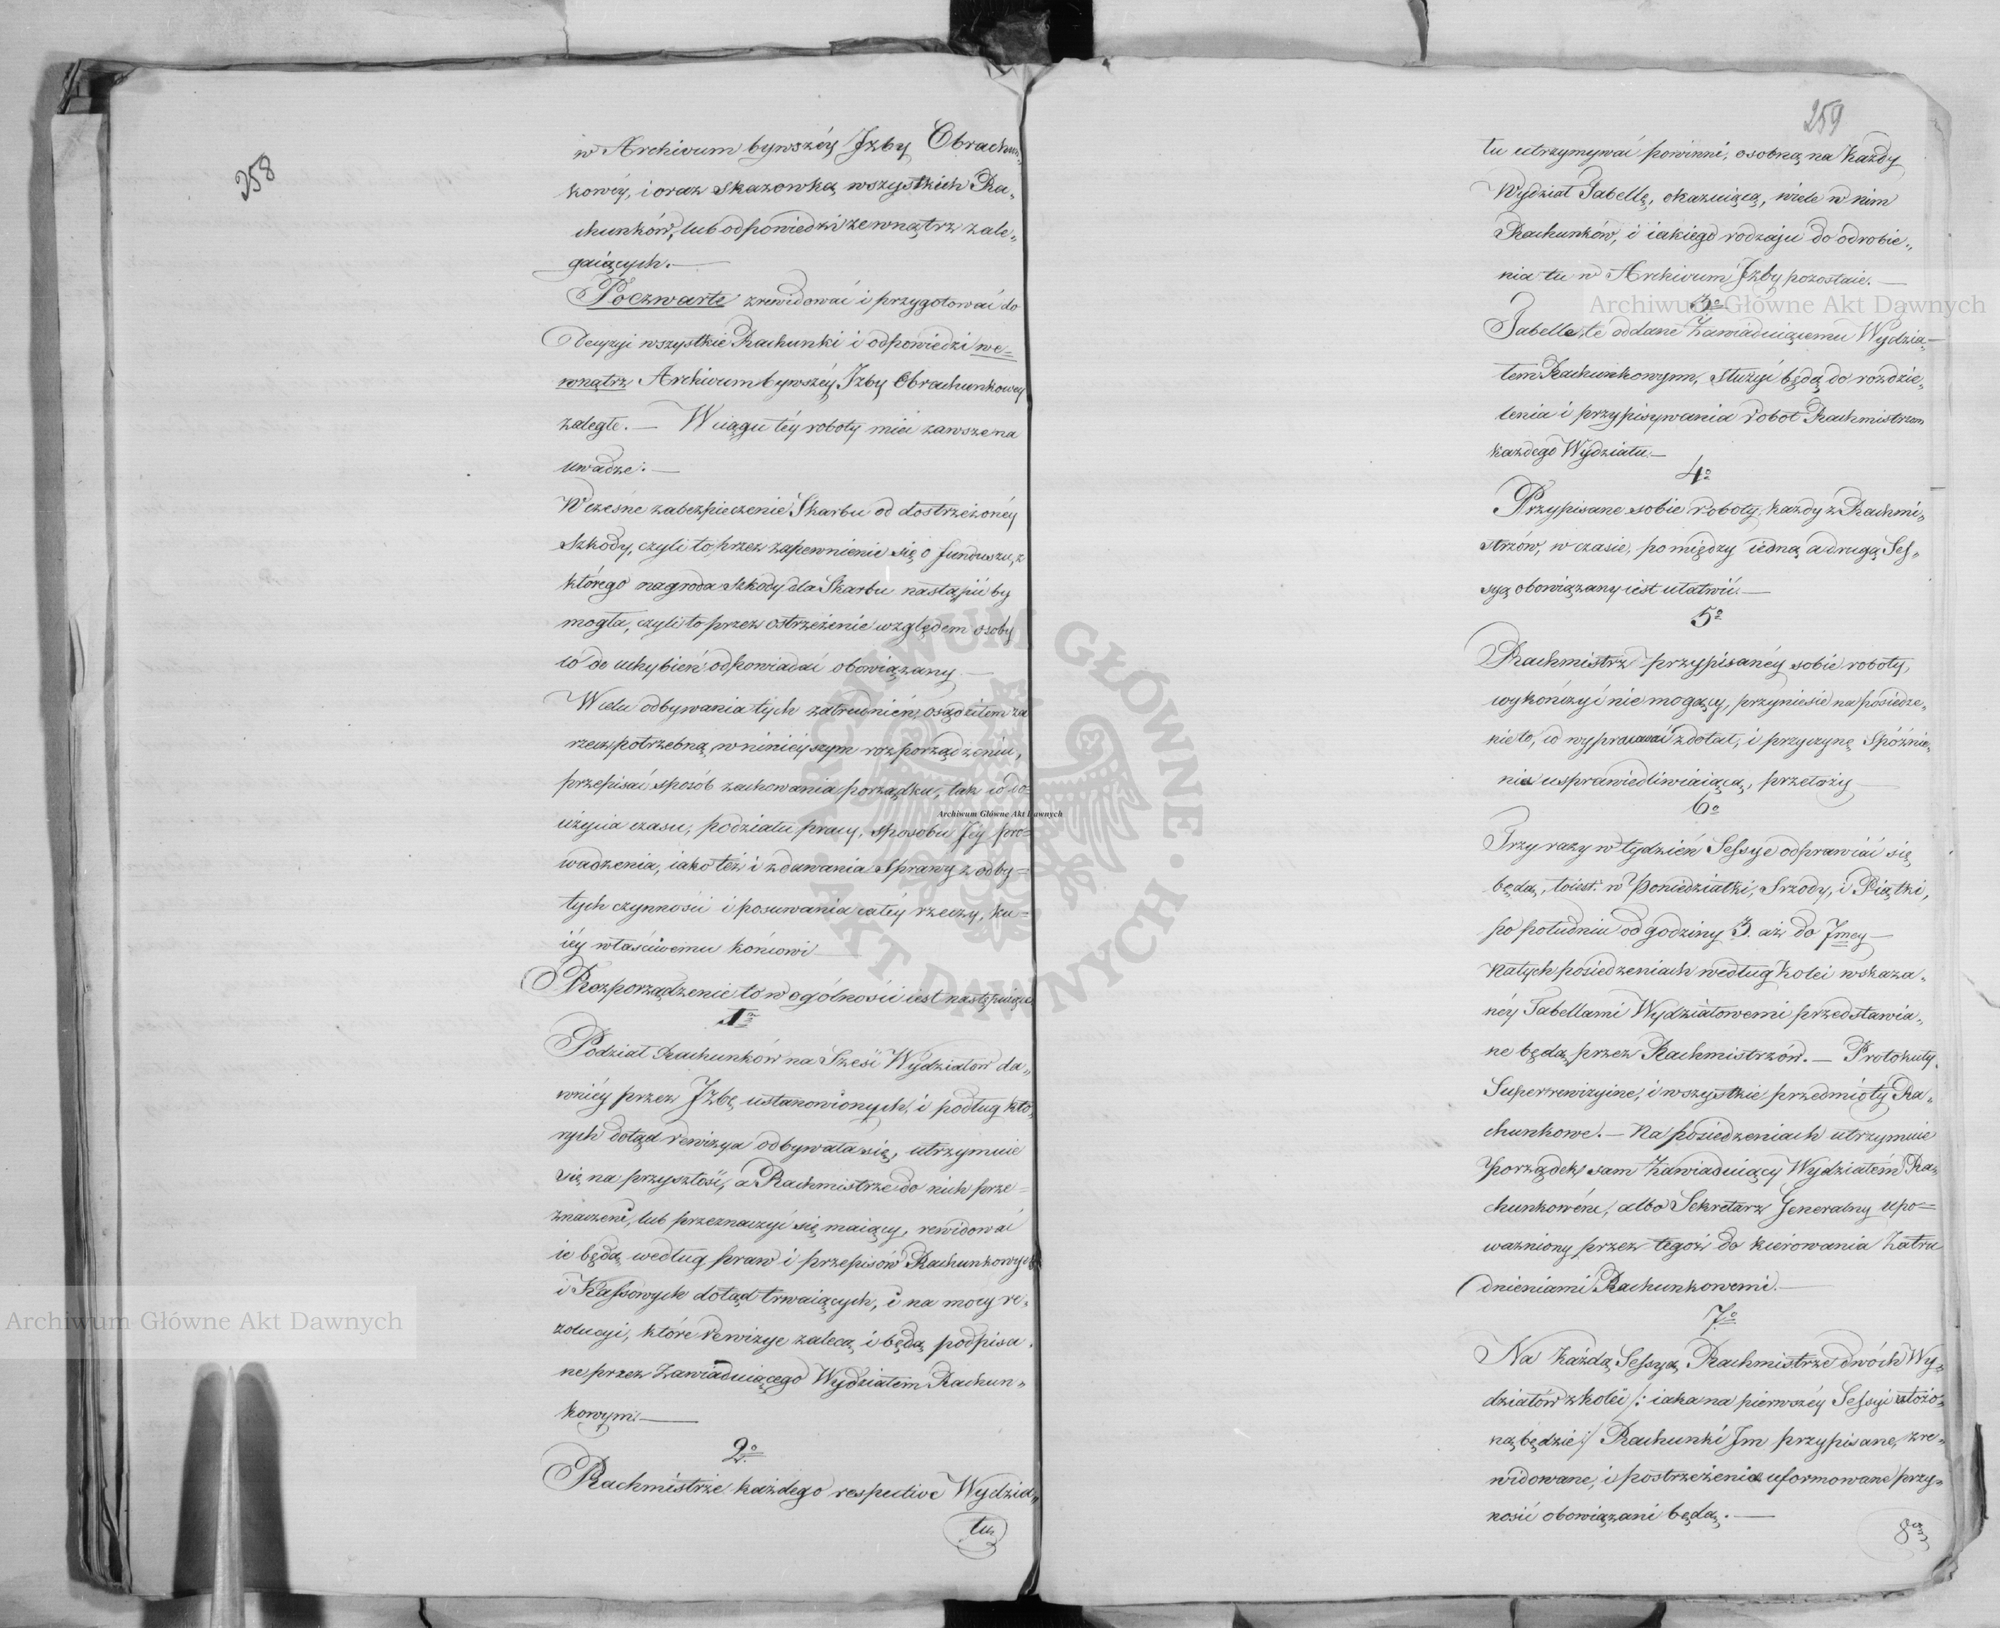 258
w Archivum bywszéy Jzby Obrachun„
kowéy, i oraz skazowką wszystkich Ra„
chunków, lub odpowiedzi zewnątrz zale„
gaiących. —
Poczwarte zrewidować i przygotować do
Decyzyi wszystkie Rachunki i odpowiedzi we=
wnątrz Archivum bywszéy Jzby Obrachunkowey
zaległe. — W ciągu téy roboty mieć zawsze na
uwadze: —
Wczesne zabezpieczenie Skarbu od dostrzeżonéy
szkody, czyli to przez zapewnienie się o funduszu, z
którego nagroda szkody dla Skarbu nastąpić by
mogła, czyli to przez ostrzeżenie względem osoby
co do uchybień odpowiadać obowiązany —
W celu odbywania tych zatrudnień, osądziłem za
rzecz potrzebną, w ninieyszym rozporządzeniu,
przepisać sposób zachowania porządku, tak co do
użycia czasu, podziału pracy, sposobu Jéy pro=
wadzenia, iako też i zdawania sprawy z odby=
tych czynności i posuwania całéy rzeczy, ku=
iéy właściwemu końcowi
Rozporządzenie to w ogólności iest następuiące
1º
Podział Rachunków na Sześć Wydziałów da„
wniéy przez Jzbę ustanowionych, i podług któ„
rych dotąd rewizya odbywała się, utrzymuie
się na przyszłość, a Rachmistrze do nich prze=
znaczeni, lub przeznaczyć się maiący, rewidować
ie będą według praw i przepisów Rachunkowych
i Kassowych dotąd trwaiących, i na mocy re„
zolucyi, które rewizye zalecą i będą podpisa„
ne przez Zawiaduiącego Wydziałem Rachun„
kowym. —
2º
Rachmistrze każdego respective Wydzia„
łu
259
łu utrzymywać powinni, osobną na każdy
Wydział Tabellę, okazuiącą, wiele w nim
Rachunków, i iakiego rodzaju do odrobie„
nia tu w Archivum Jzby pozostaie. —
3º
Tabelle te oddane Zawiaduiącemu Wydzia—
łem Rachunkowym, służyć będą do rozdzie„
lenia i przypisywania robot Rachmistrzom
każdego Wydziału. —
4º
Przypisane sobie roboty, każdy z Rachmi„
strzów, w czasie, pomiędzy iedną a drugą Ses„
syą obowiązany iest ułatwić. —
5º
Rachmistrz przypisanéy sobie roboty,
wykończyć nie mogący, przyniesie na posiedze„
nie to, co wypracować zdołał, i przyczynę spóźnie„
nia usprawiedliwiaiącą, przełoży —
6º
Trzy razy w tydzień Sessye odprawiać się
będą, to iest: w Poniedziałki, Srzody, i Piątki,
po południu od godziny 3. aż do 7mey —
Na tych posiedzeniach według kolei wskaza„
néy Tabellami Wydziałowemi przedstawia„
ne będą przez Rachmistrzów. — Protokuły
Superrewizyine, i wszystkie przedmioty Ra„
chunkowe. — Na posiedzeniach utrzymuie
porządek sam Zawiaduiący Wydziałem Ra„
chunkowém, albo Sekretarz Jeneralny upo=
ważniony przez tegoż do kierowania zatru
dnieniami Rachunkowemi. —
7º
Na każdą Sessyą Rachmistrze dwóch Wy„
działów z kolei /: iaka na pierwszéy Sessyi ułożo„
ną będzie :/ Rachunki Jm przypisane, zre„
widowane, i postrzeżenia uformowane przy„
nosić obowiązani będą. —
8º
Archiwum Główne Akt Dawnych
Archiwum Główne Akt Dawnych
Archiwum Główne Akt Dawnych
ARCHIWUM GŁÓWNE · AKT DAWNYCH ·